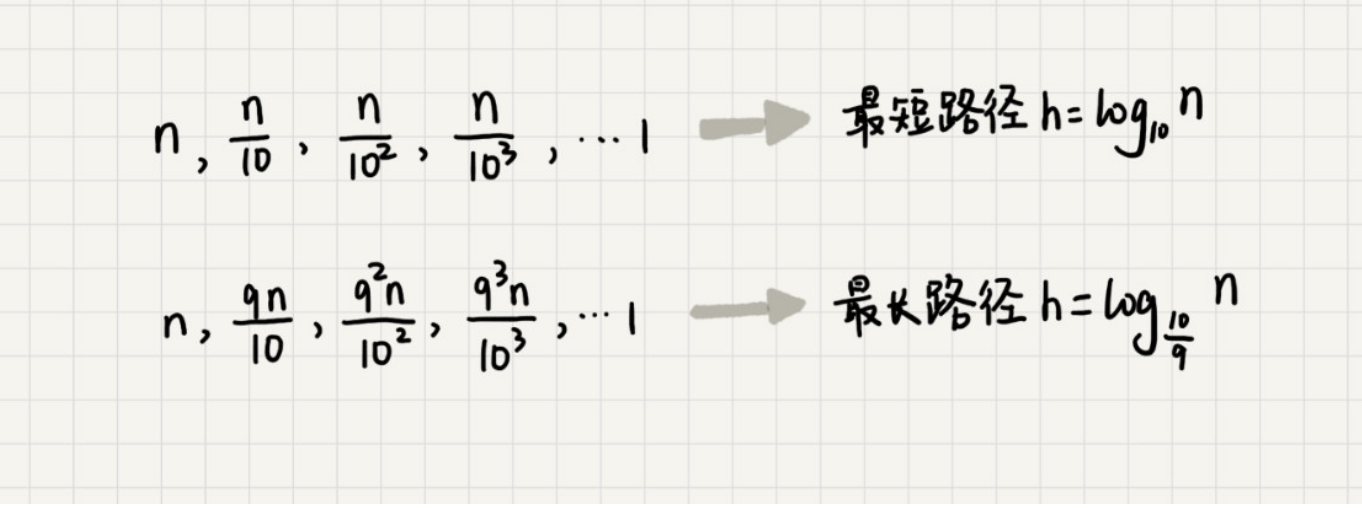 n, n/10, n/10², n/10³, … 1 最短路径 h = log₁₀ n
n, 9n/10, 9²n/10², 9³n/10³, … 1 最长路径 h = log_{10/9} n